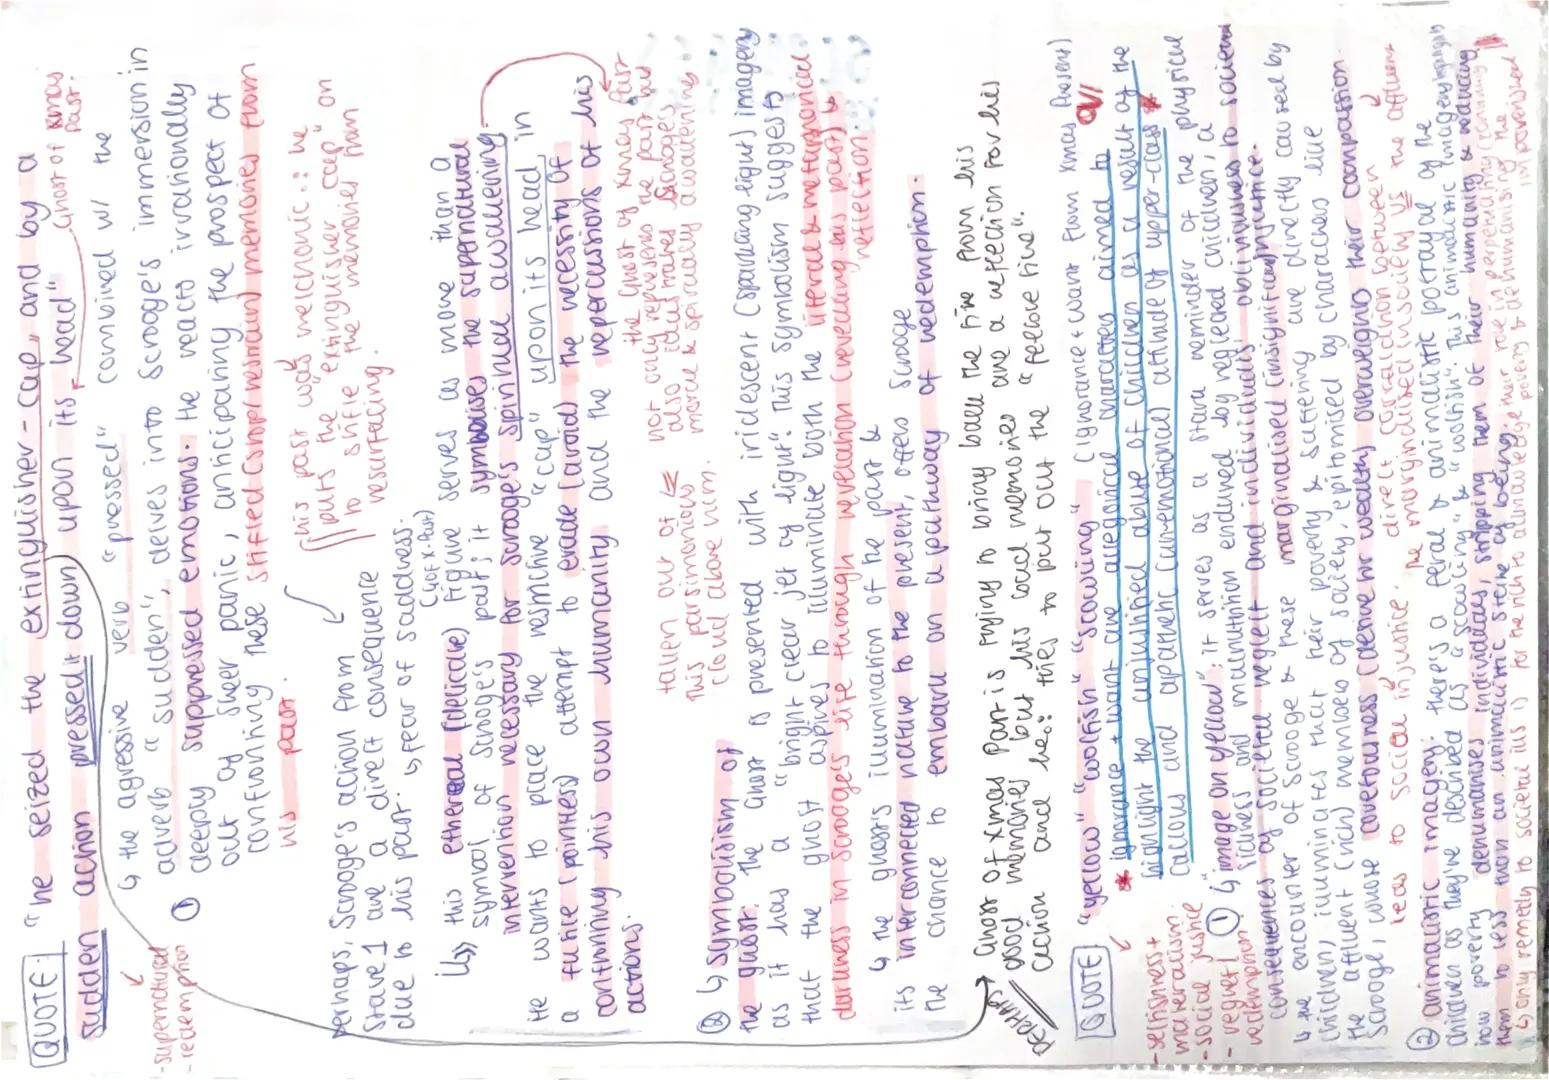 QUOTE: "he seized the extinguisher-cap, and by a
sudden action pressed it down upon its head"
Ghost of xmas
past.
- supernatural
- redemption
↳ the agressive verb "pressed" combined w/ the
adverb "sudden", delves into Scrooge's immersion in
① deeply suppressed emotions. He reacts irrationally
out of sheer panic, anticipating the prospect of
confronting these stifled memories from
his past.
this past was
∴ he
puts the "extinguisher cap" on
to stifle the memories from
resurfacing.
perhaps, Scrooge's action from
stave 1 are a direct consequence
due to his past. ↳ fear of sadness.
(G of X-Past)
↳ this ethereal (delicate) figure serves as more than a
symbol of Scrooge's past; it symbolises the supernatural
intervention necessary for Scrooge's spiritual awakening
He wants to place the restrictive "cap" "upon its head" in
a futile (pointless) attempt to evade (avoid) the necessity of
confronting his own humanity and the repercussions of his
actions.
the Ghost of xmas past
not only represents the past but
also
Scrooge's
morale & spiritually awakening
fallen out of
his parsimonious
cloud above him.
② ↳ Symbolism of
the ghost: The Ghost is presented with iridescent (sparkling light) imagery
as it has a "bright clear jet of light". This symbolism suggests
that the ghost aspires to illuminate both the literal & metaphorical
darkness in Scrooge's life through revelation (revealing his past) &
reflection.
↳ The ghost's illumination of the past &
its interconnected nature to the present, offers Scrooge
the chance to embark on a pathway of redemption.
perhaps
Ghost of xmas Past is trying to bring back the fire from his
good memories but his bad memories are a
for his
action and he: tries to put out the "
fire".
QUOTE: "yellow" "wolfish" "scowling" (ignorance + want from xmas present)
AO1
* ignorance + want are allegorical characters aimed to
highlight the unjustified abuse of children as a result of the
callous and apathetic (unemotional) attitude of upper-class *
- selfishness +
materialism.
- social justice
- regret/
redemption
① ↳ image on "yellow": it serves as a stark reminder of the physical
sickness and malnutrition endured by neglected children, a
consequence of societal neglect and individuals obliviousness to societal
marginalised (insignificant) injustice.
↳ the encounter of Scrooge & these
children, illuminates that their poverty & suffering are directly caused by
the affluent (rich) members of society, epitomised by characters like
Scrooge, whose covetousness (desire for wealth) overweighs their compassion.
leads to social injustice.
direct correlation between
the marginalised in society VS the affluent
② animalistic imagery: there's a feral & animalistic portrayal of the
children as they're described as "scowling" & "wolfish". This animalistic imagery highlights
how poverty dehumanises individuals, stripping them of their humanity & reducing
them to less than an animalistic state of being.
↳ only remedy to societal ills is for the rich to acknowledge their role in perpetuating (continuing)
poverty & dehumanising the
impoverished